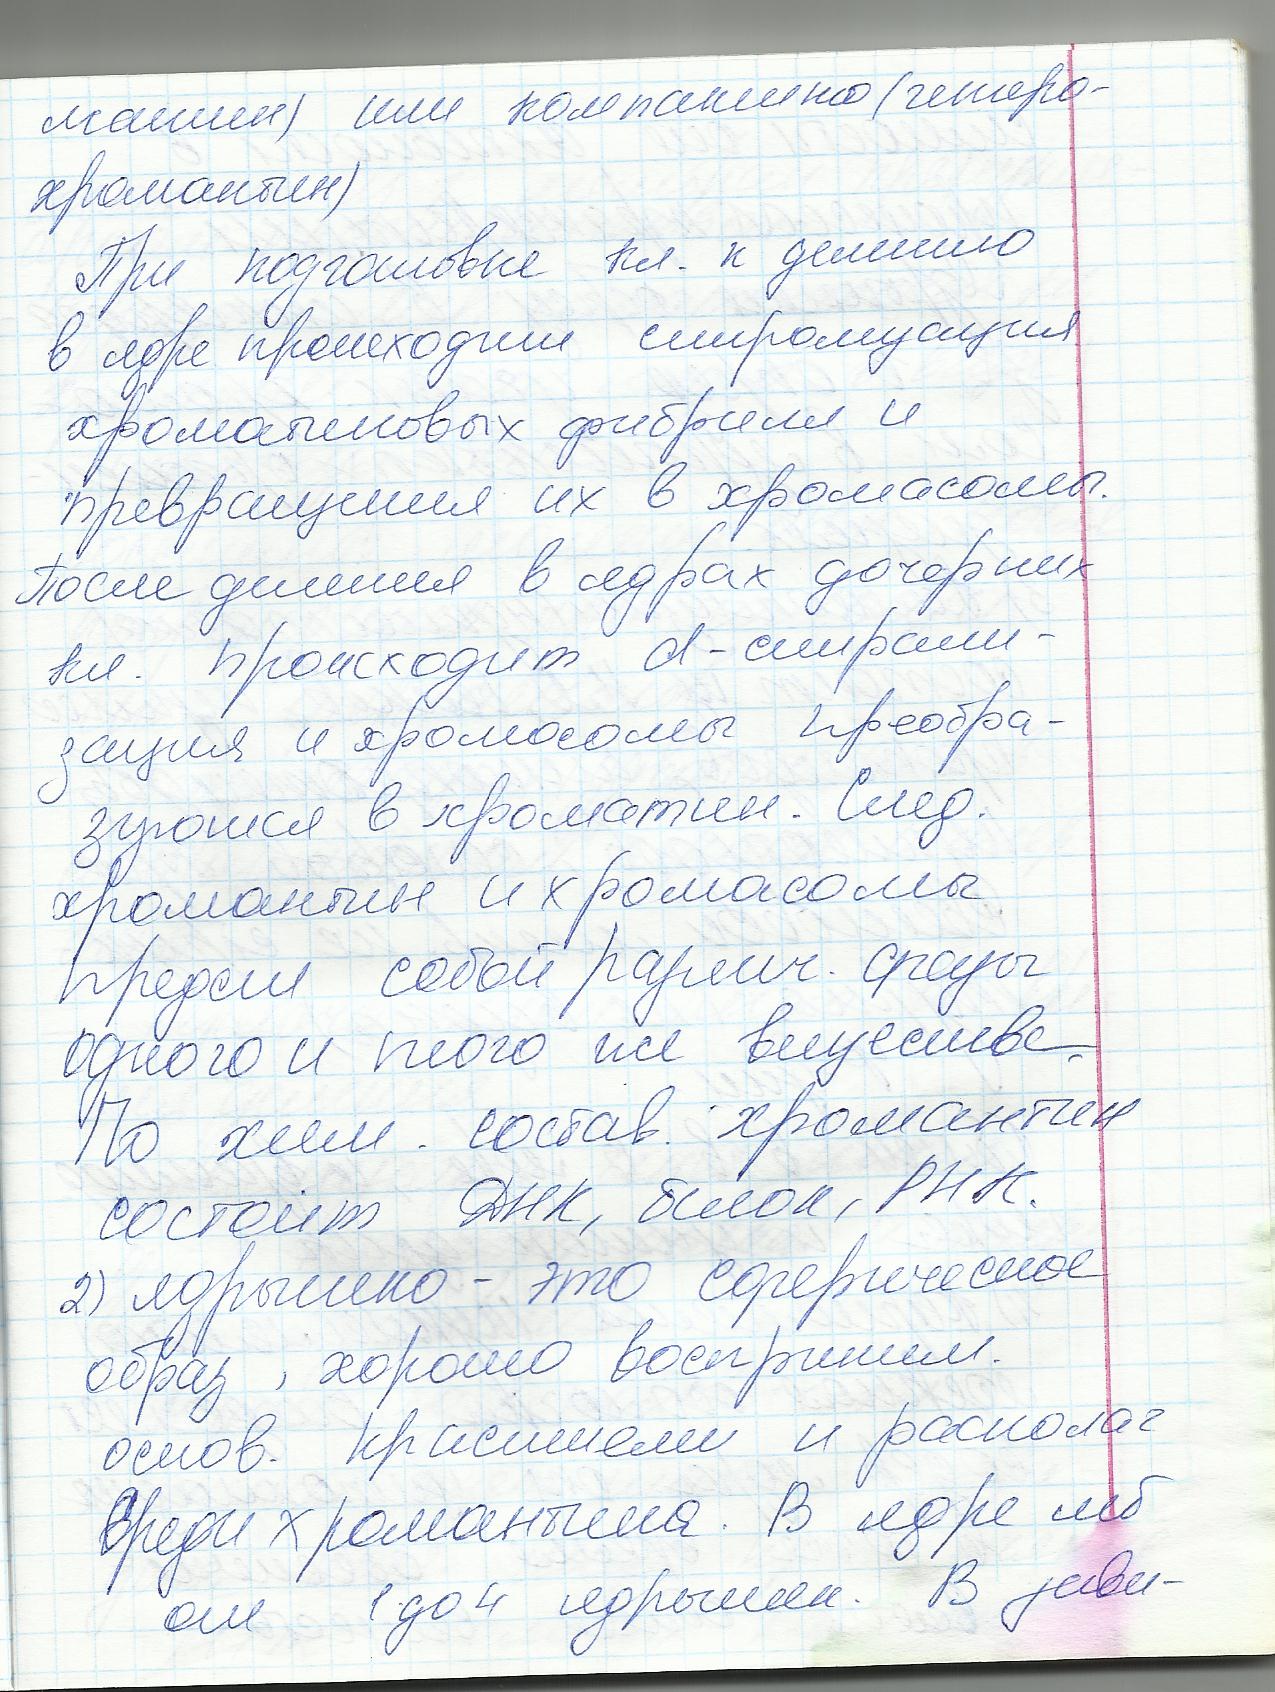 матин) или компактно (гетеро-
хромантин)
При подготовке кл. к делению
в ядре происходит спирализация
хроматиновых фибрилл и
превращения их в хромасомы.
После деления в ядрах дочерних
кл. происходит d-спирали-
зация и хромосомы преобра-
зуются в хроматин. След.
хромантин и хромасомы
предст собой различ. фазы
одного и того же вещества.
По хим. состав. хромантин
состоит ДНК, белок, РНК.
2) Ядрышко - это сферическое
образ, хорошо восприним.
основ. красители и располаг
среди хромантина. В ядре мб
от 1 до 4 ядрышек. В зави-